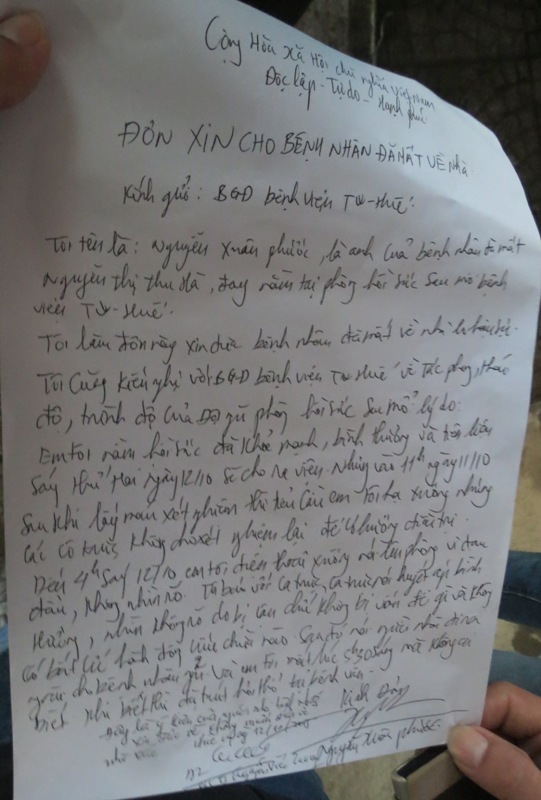 Cộng Hòa xã Hội chủ nghĩa Việt Nam
Độc lập - Tự do - Hạnh phúc
ĐƠN XIN CHO BỆNH NHÂN ĐÃ MẤT VỀ Nhà
Kính gửi: BGĐ bệnh viện TW-Huế.
Tôi tên là: Nguyễn Xuân Phước, là anh của bệnh nhân đã mất
Nguyễn Thị Thu Hà, đang nằm tại phòng hồi sức sau mổ bệnh
viện TW-Huế.
Tôi làm đơn này xin đưa bệnh nhân đã mất về nhà
Tôi cũng kiến nghị với BGĐ bệnh viện TW Huế về tác phong, thái
độ, trình độ của phòng hồi sức sau mổ lý do:
Em tôi nằm hồi sức đã khỏe mạnh, bình thường và
Sáng thứ Hai ngày 12/10 sẽ cho ra viện nhưng 11h ngày 11/10
Sau khi lấy máu xét nghiệm thì tiểu cầu em tôi hạ xuống nhưng
các cô trực không cho xét nghiệm lại để có hướng điều trị.
Đến 4h sáng 12/10 em tôi điện thoại xuống nói lên phòng vì đau
đầu, không nhìn rõ. Tôi báo với ca trực, ca trực nói huyết áp bình
thường, nhìn không rõ do bị chứ không bị vấn đề gì và không
có bất cứ hành động cứu chữa nào. Sau đó nói người nhà đi ra
cho bệnh nhân ngủ và em tôi mất lúc 5h30 sáng mà không ai
biết khi biết thì đã trút hơi thở tại bệnh viện.
Kính Đơn
Đây là ý kiến của
Nguyễn Xuân Phước